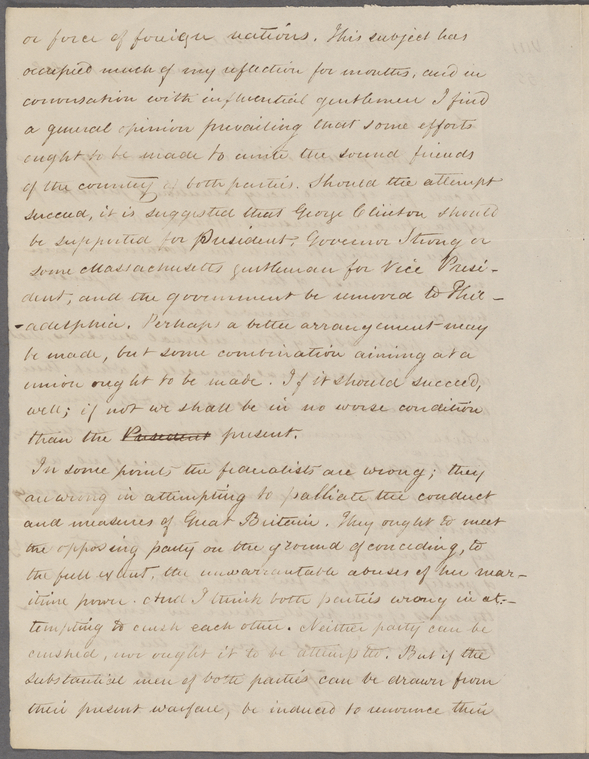 or force of foreign nations. This subject has
occupied much of my reflection for months, and in
conversation with influential gentlemen I find
a general opinion prevailing that some efforts
ought to be made to unite the sound friends
of the country of both parties. Should the attempt
succeed, it is suggested that George Clinton should
be supported for President, Governor Strong or
some Massachusetts gentleman for Vice Presi-
dent, and the government be removed to Phil-
adelphia. Perhaps a better arrangement may
be made, but some combination aiming at a
union ought to be made. If it should succeed,
well; if not we shall be in no worse condition
than the President present.
In some points the federalists are wrong; they
are wrong in attempting to palliate the conduct
and measures of Great Britain. They ought to meet
the opposing party on the ground of conceding, to
the full extent, the unwarrantable abuses of her mar-
itime power. And I think both parties wrong in at-
tempting to crush each other. Neither party can be
crushed, nor ought it to be attempted. But if the
substantial men of both parties can be drawn from
their present warfare, be induced to renounce their